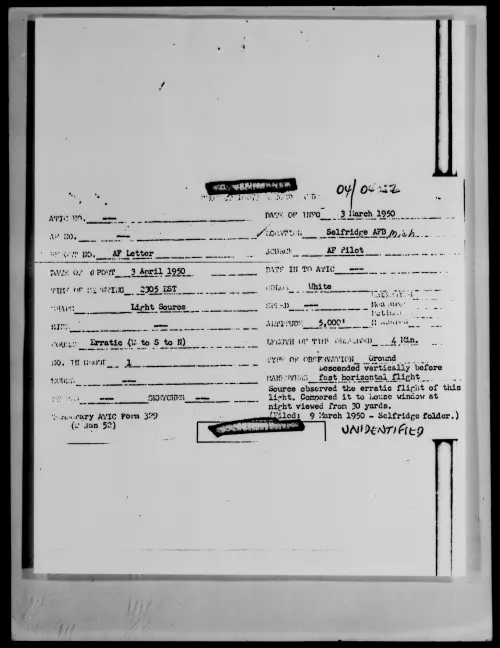 ATIC NO. — DATE OF INFO 3 March 1950
AF NO. — LOCATION Selfridge AFB Mich
REPORT NO. AF Letter SOURCE AF Pilot
DATE OF REPORT 3 April 1950 DATE IN TO ATIC —
TIME OF SIGHTING 2305 EST COLOR White
SHAPE Light Source SPEED —
SIZE — ALTITUDE 5,000'
COURSE Erratic (N to S to N) LENGTH OF TIME OBSERVED 4 Min.
NO. IN GROUP 1 TYPE OF OBSERVATION Ground
Descended vertically before
SOUND — MANEUVERS fast horizontal flight
— SKETCHES — Source observed the erratic flight of this
light. Compared it to house window at
night viewed from 30 yards.
Temporary ATIC Form 329 (Filed: 9 March 1950 - Selfridge folder.)
(2 Jan 52) UNIDENTIFIED